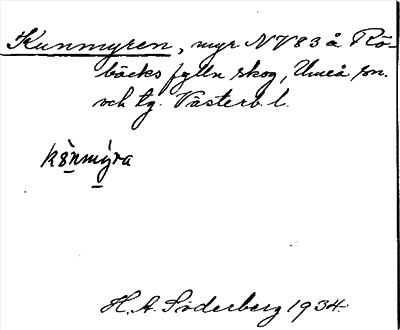 Kunmyren, myr NV83 å Rö-
bäcks fylln skog, Umeå sn.
och tg. Västerb. l.
kùnmýra
H. A. Söderberg 1934.